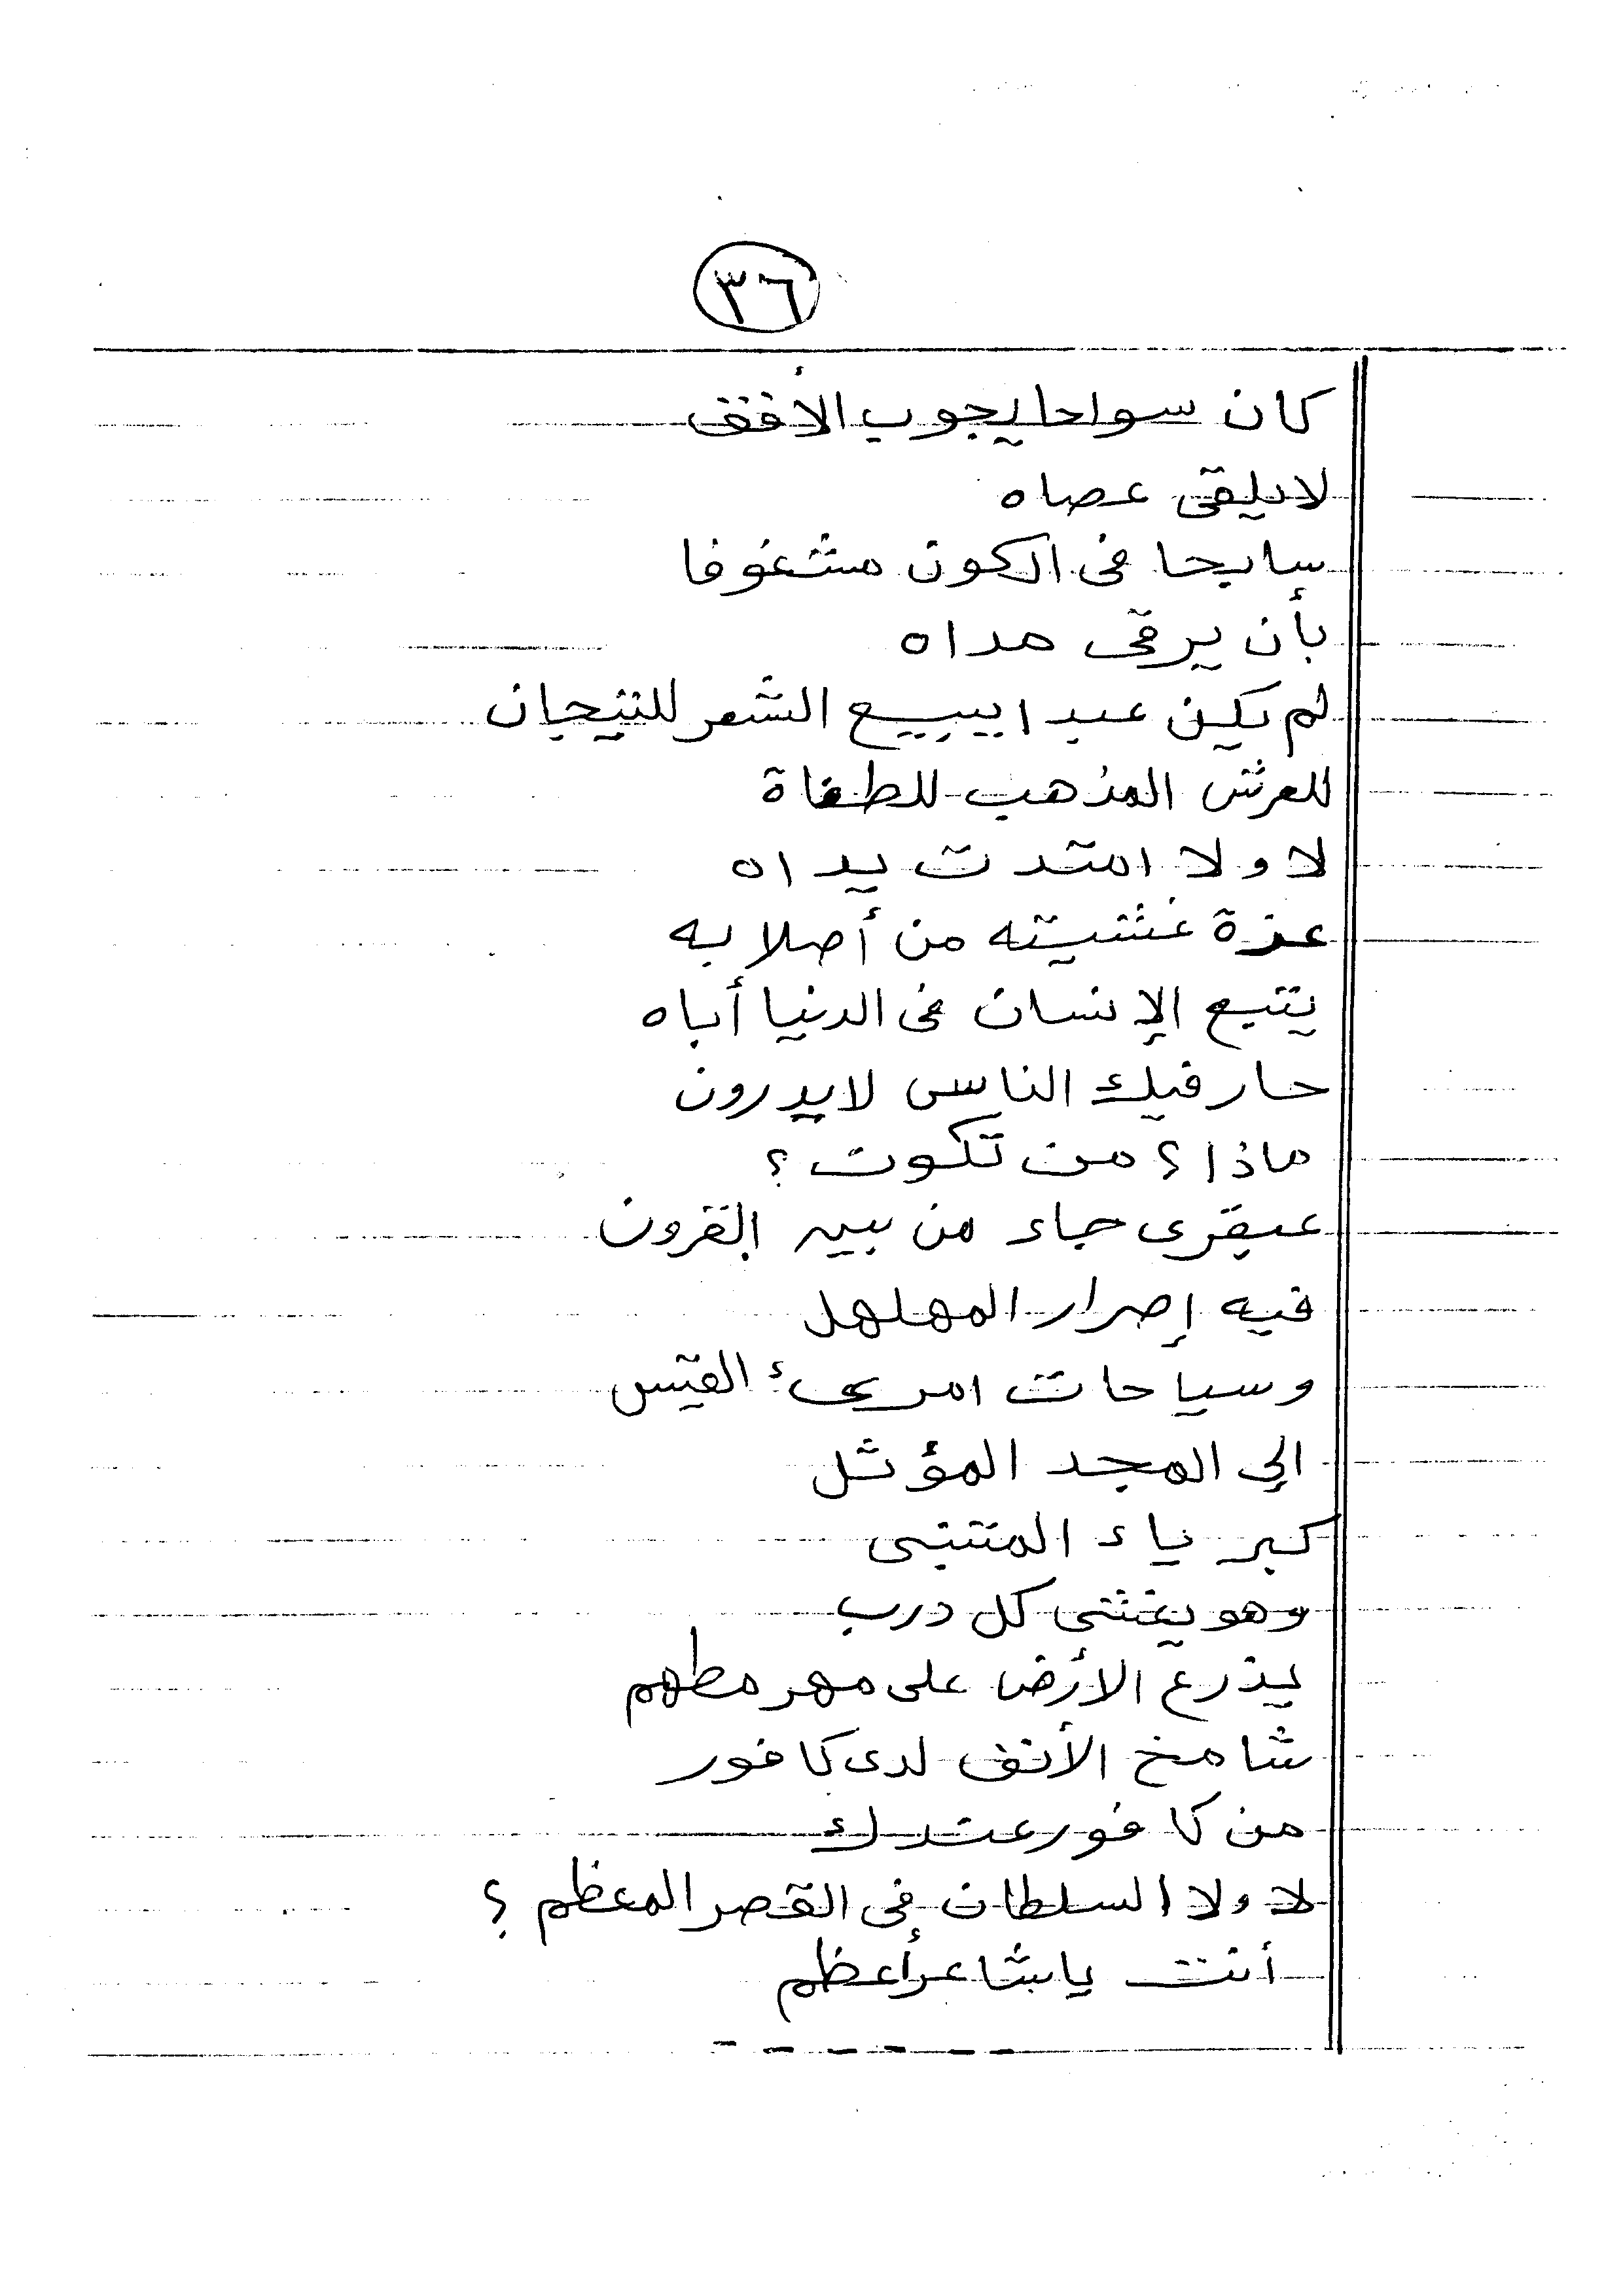 ٣٦
كان سواحا يجوب الأفق
لا يلقى عصاه
سابحا فى الكون مشغوفا
بأن يرقى مداه
لم يكن عبدا يبيع الشعر للتيجان
للعرش المذهب للطغاة
لا ولا امتدت يداه
عزة غشيته من أصلابه
يتبع الإنسان فى الدنيا أباه
حار فيك الناس لا يدرون
ماذا ؟ من تكون ؟
عبقرى جاء من بين القرون
فيه إصرار المهلهل
وسياحات امرىء القيس
إلى المجد المؤثل
كبرياء المتنبى
وهو يغشى كل درب
يذرع الأرض على مهر مطهم
شامخ الأنف لدى كافور
من كافور عندك
لا ولا السلطان فى القصر المعظم ؟
أنت يا شاعر أعظم